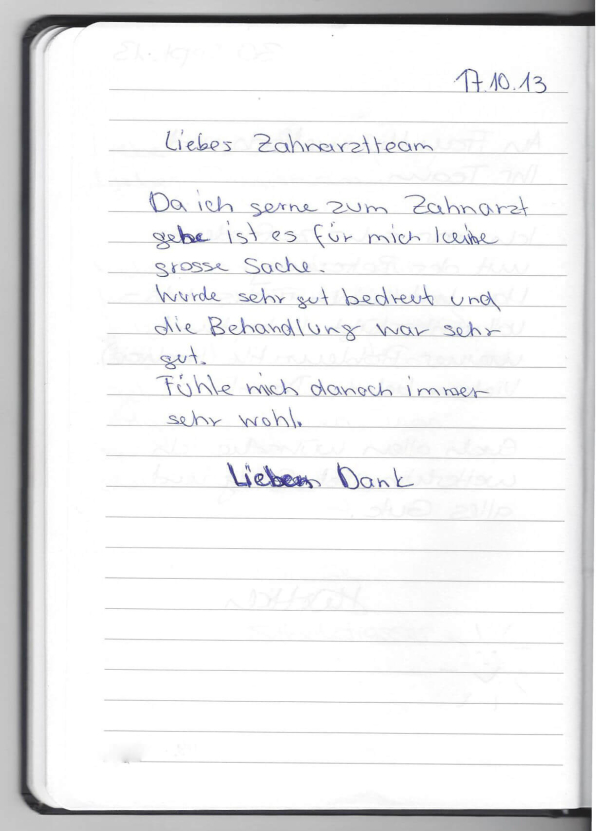 17.10.13
Liebes Zahnarztteam
Da ich gerne zum Zahnarzt
gehe ist es für mich keine
grosse Sache.
Wurde sehr gut bedreut und
die Behandlung war sehr
gut.
Fühle mich danach immer
sehr wohl.
Lieben Dank